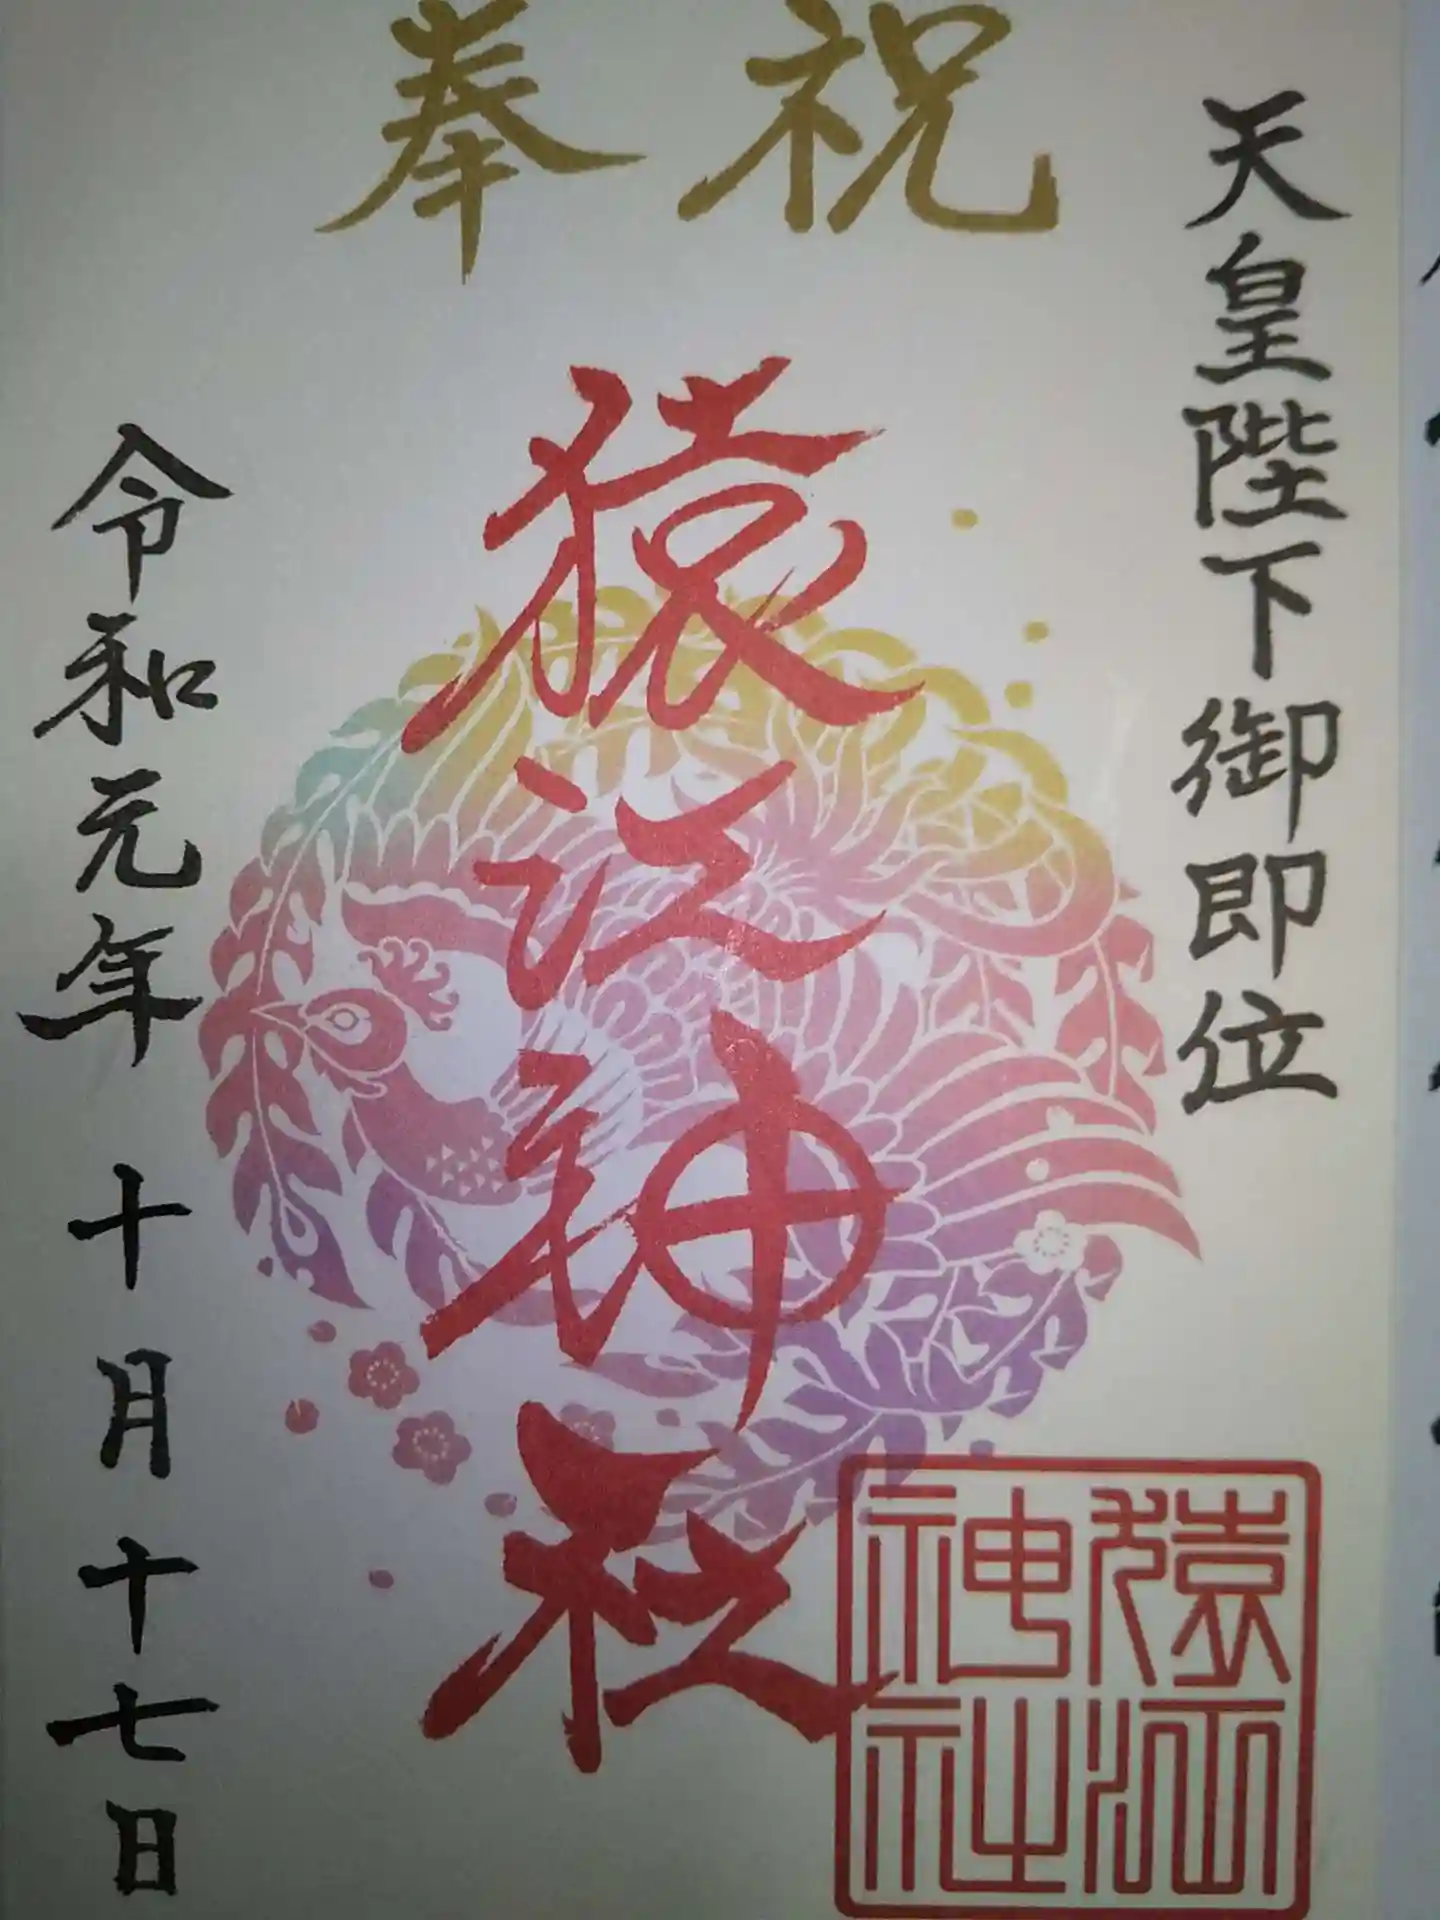 奉祝
天皇陛下御即位
猿江神社
猿江神社
令和元年 十月 十七日